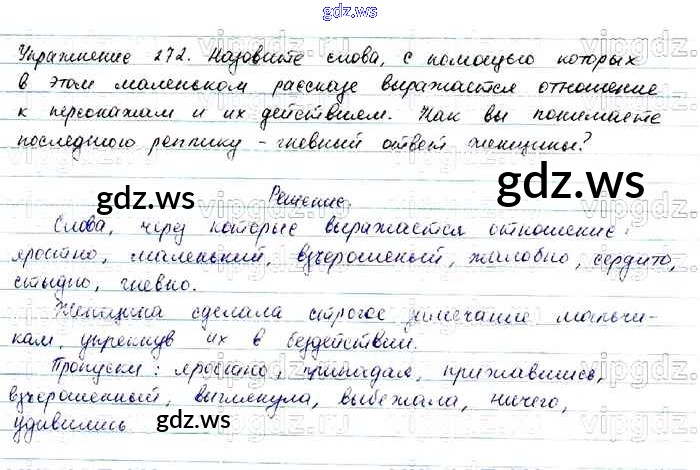 gdz.ws
Упражнение 272. Назовите слова, с помощью которых
в этом маленьком рассказе выражается отношение
к персонажам и их действиям. Как вы понимаете
последнюю реплику – гневный ответ женщины?
gdz.ws
gdz.ws
Решение.
Слова, через которые выражается отношение:
яростно, маленький, взъерошеный, жалобно, сердито,
стыдно, гневно.
Женщина сделала строгое замечание мальчи-
кам, упрекнув их в бездействии.
Пропуски: яростно, припадая, прижавшись,
взъерошенный, выглянула, выбежала, ничего,
удивились
gdz.ws
gdz.ws